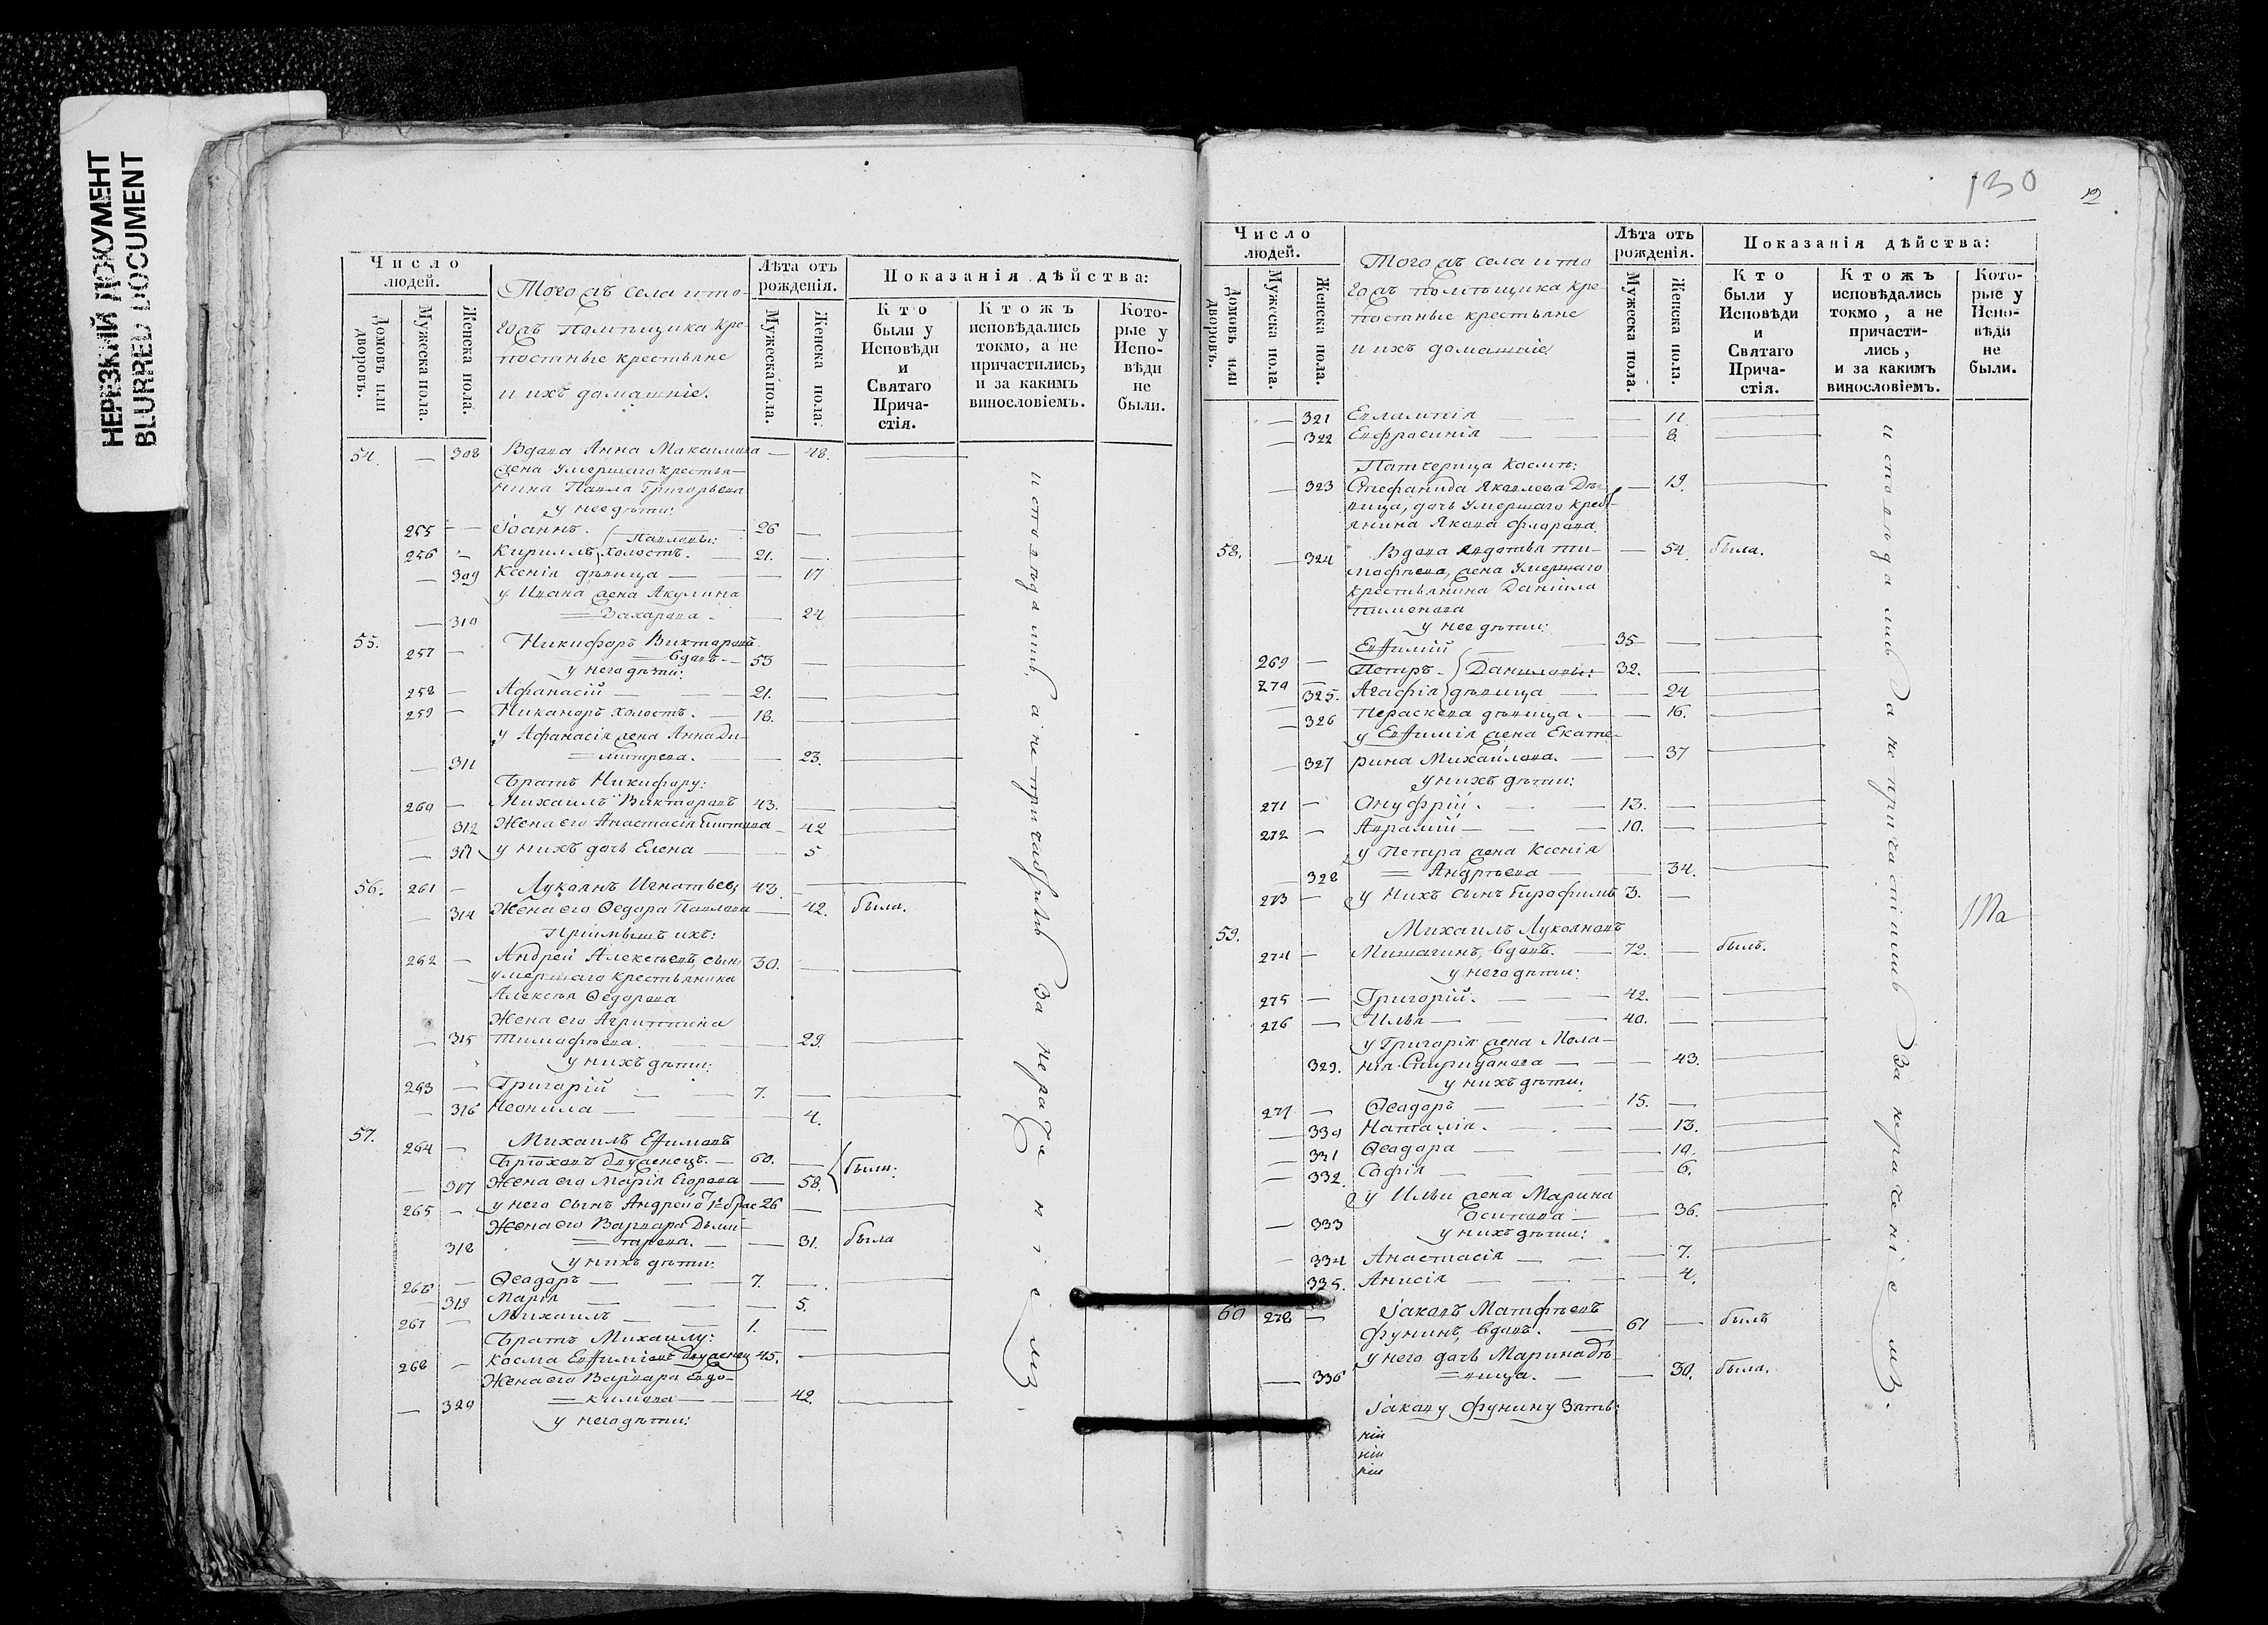 НЕРЕЗКИЙ ДОКУМЕНТ
BLURRED DOCUMENT
Число людей.
Домовъ или дворовъ.
Мужеска пола.
Женска пола.
Тогожъ села и то-
гожъ помѣщика кре-
постные крестьяне
и ихъ домашніе.
Лѣта отъ рожденія.
Мужеска пола.
Женска пола.
Показанія дѣйства:
Кто были у Исповѣди и Святаго Прича-стія.
Ктожъ исповѣдались токмо, а не причастились, и за какимъ винословіемъ.
Кото-рые у Испо-вѣди не были.
54. — 308 Вдова Анна Максимова — 48.
жена умершаго крестья-
нина Павла Григорьева
у нее дѣти:
255 — Іоаннъ. Павловы: 26 —
256 — Кириллъ холостъ. — 21. —
— 309 Ксенія дѣвица — — 17
у Ивана жена Акулина
— 310 = Захарова. — 24
55. 257 — Никифоръ Викторовъ
= вдовъ — 53 —
у него дѣти:
258 — Афанасій — — 21. —
259 — Никаноръ холостъ. — 18. —
у Афанасія жена Анна Ди-
— 311 = митрева. — 23.
Братъ Никифору:
260 — Михаилъ Викторовъ 43. —
312 Жена его Анастасія — 42
— у нихъ дочь Елена — 5
56. 261 — Лукоянъ Игнатьевъ 43. —
— 314 Жена его Ѳедора Павлова — 42. была.
Пріимышъ ихъ:
262 — Андрей Алексѣевъ, сынъ 30. —
умершаго крестьянина
Алексѣя Ѳедорова
Жена его Агриппина
— 315 Тимофѣева. — 29.
у нихъ дѣти:
263 — Григорій — — 7. —
— 316 Неонила — — 4.
57. 264 — Михаилъ Ефимовъ
Брюховъ двуженецъ. — 60. — были.
— 317 Жена его Марія Егорова — 58.
265 — у него сынъ Андрей 26 —
Жена его Варвара Дими-
318 = трева. — — 31. была
у нихъ дѣти:
266 — Ѳеодоръ — — 7. —
— 319 Марія — — 5.
267 — Михаилъ — — 1. —
Братъ Михаилу:
268 — Косма Евфиміевъ двуженец 45. —
Жена его Варвара Евдо-
— 320 = кимова — — 42.
у него дѣти:
исповѣдались а не причастились за нераченіемъ.
130
Число людей.
Домовъ или дворовъ.
Мужеска пола.
Женска пола.
Тогожъ села и то
гожъ помѣщика кре-
постные крестьяне
и ихъ домашніе
Лѣта отъ рожденія.
Мужеска пола.
Женска пола.
Показанія дѣйства:
Кто были у Исповѣди и Святаго Прича-стія.
Ктожъ исповѣдались токмо, а не причасти-лись, и за какимъ винословіемъ.
Кото-рые у Испо-вѣди не были.
— 321 Евлампія — — 11
— 322 Евфросинія — — 8.
Патчерица Космѣ:
— 323 Стефанида Яковлева Дѣ- — 19.
вица, дочь умершаго крест-
янина Якова Флорова
58. — 324 Вдова Авдотья Ти- — 54. была.
мофѣева, жена умершаго
крестьянина Даніила
Пименова
у нее дѣти:
269 — Евфимій — 35 —
270 — Петръ — Даниловы: 32. —
325. Агафія дѣвица — — 24
— 326 Пераскева дѣвица. — — 16.
у Евфимія жена Екате-
— 327 рина Михайлова. — — 37
у нихъ дѣти:
271 — Онуфрій. — — 13. —
272 — Авраамій — — 10. —
у Петра жена Ксенія
328 = Андрѣева — — 34.
273 — у нихъ сынъ 3. —
59. Михаилъ Лукояновъ
274 — Мишагинъ, вдовъ. — 72. — былъ.
у него дѣти:
275 — Григорій. — — 42. —
276 — Илья — — 40. —
у Григорія жена Мела-
329. нія Спиридонова — — 43.
у нихъ дѣти:
277 — Ѳеодоръ — — 15. —
— 330 Наталія. — — 13.
— 331 Ѳеодора — — 10.
— 332. Софія — — 6.
у Ильи жена Марина
— 333 Осипова — — 36.
у нихъ дѣти:
— 334 Анастасія — — 7.
335. Анисія — — 4.
60 278 — Іаковъ Матфѣевъ
Фунинъ, вдовъ. — 61 — былъ
у него дочь Марина дѣ-
— 336 = вица. — — 30. была.
Іакову Фунину Зять:
исповѣдались а не причастились за нераченіемъ.